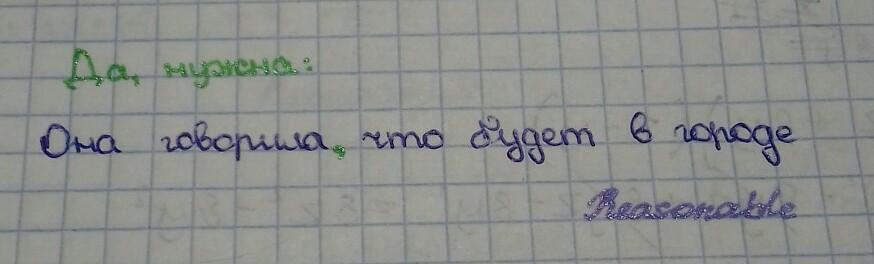 Да, нужна:
Она говорила, что будет в городе
Reasonable